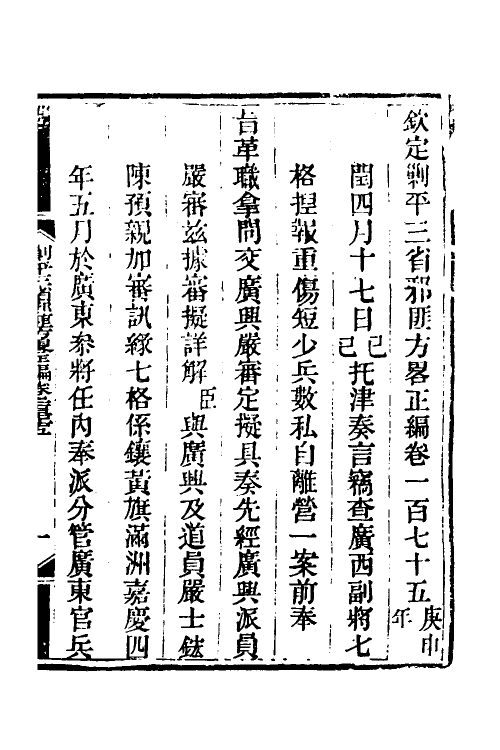 欽定剿平三省邪匪方畧正編卷一百七十五庚申年
閏四月十七日己巳托津奏言竊查廣西副將七
格捏報重傷短少兵數私自離營一案前奉
旨革職拿問交廣興嚴審定擬具奏先經廣興派員
嚴審茲據審擬詳解臣與廣興及道員嚴士鋐
陳預親加審訊緣七格係鑲黃旗滿洲嘉慶四
年五月於廣東叅將任內奉派分管廣東官兵